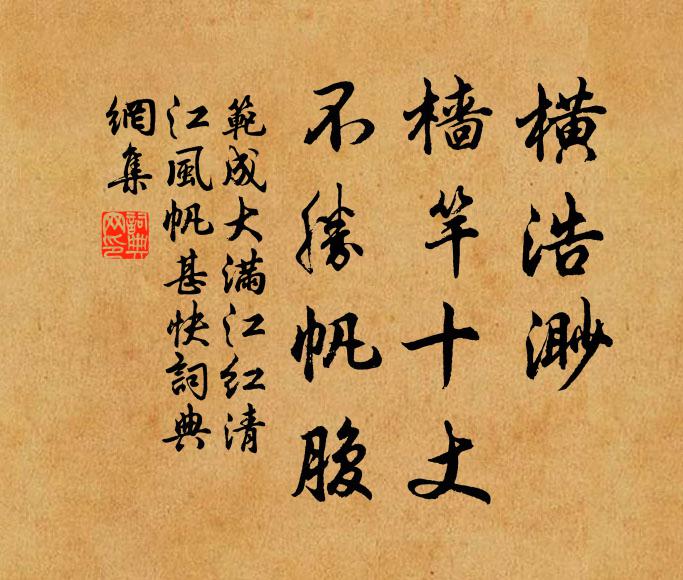 橫浩渺
檣竿十丈
不勝帆腹
範成大滿江红清
江風帆甚快詞典
網集
詞典網印